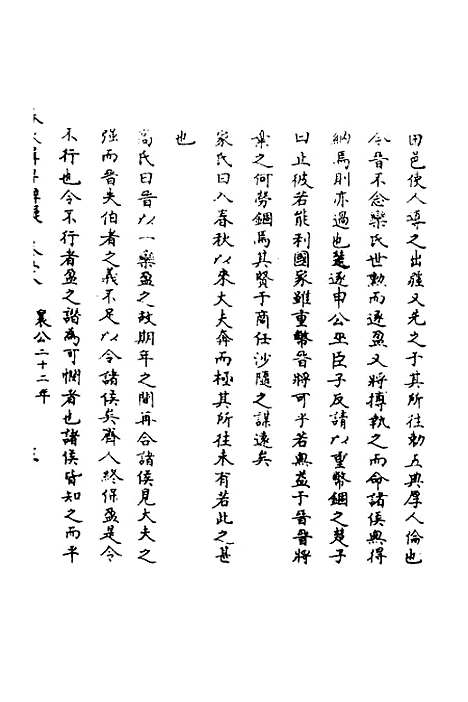 田邑使人導之出疆又先之于其所往勅五典厚人倫也
今晉不念欒氏世勳而逐盈又將搏執之而命諸侯無得
納焉則亦過也楚逐申公巫臣子反請以重幣錮之楚子
曰止彼若能利國家雖重幣晉將可乎若無益于晉晉將
棄之何勞錮焉其賢于商任沙隨之謀遠矣
家氏曰入春秋以來大夫奔而極其所往未有若此之甚
也
高氏曰晉以一欒盈之故期年之間再合諸侯見大夫之
強而晉失伯者之義不足以令諸侯矣齊人終保盈是令
不行也令不行者盈之譖為可憫者也諸侯皆知之而平
襄公二十二年